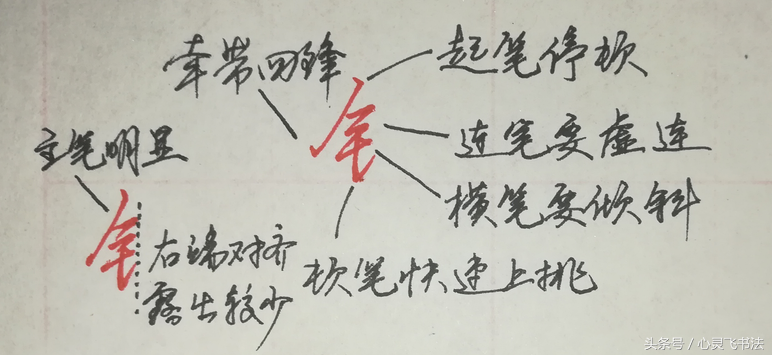 牵带回锋
起笔停顿
主笔明显
连笔要虚连
横笔要倾斜
右端对齐
露出较少
顿笔快速上挑
头条号 / 心灵飞书法